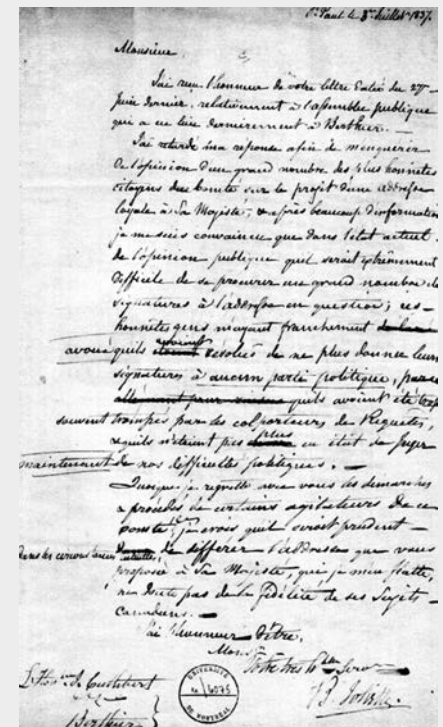 St Paul le 3e Juillet 1837.
Monsieur
J'ai reçu l'honneur de votre lettre datée du 27
Juin dernier, relativement à l'assemblée publique
qui a eu lieu dernièrement à Berthier. —
J'ai retardé ma réponse afin de m'enquérir
de l'opinion d'un grand nombre des plus honnêtes
citoyens du comté sur le projet d'une addresse
loyale à Sa Majesté, & après beaucoup d'information
je me suis convaincu que dans l'état actuel
de l'opinion publique qu'il serait extrêmement
difficile de se procurer un grand nombre de
signatures à l'addresse en question; ces
honnêtes gens m'ayant franchement
avoué qu'ils étoient résolus de ne plus donner leurs
signatures à aucun parti politique,
qu'ils avoient été trop
souvent trompés par des colporteurs de Requêtes,
& qu'ils n'étoient pas plus en état de juger
maintenant de nos difficultés politiques. —
Quoique je regrette avec vous les démarches
& procédés de certains agitateurs de ce
comté, je crois qu'il seroit prudent —
dans les circonstances actuelles de différer l'addresse que vous
proposée à Sa Majesté, qui je m'en flatte,
ne doute pas de la fidélité de ses Sujets
Canadiens. —
J'ai l'honneur d'être,
Monsr
Votre très hble Serv
B. Joliette
L'Honble J. Cuthbert
Berthier
UNIVERSITÉ
DE MONTRÉAL